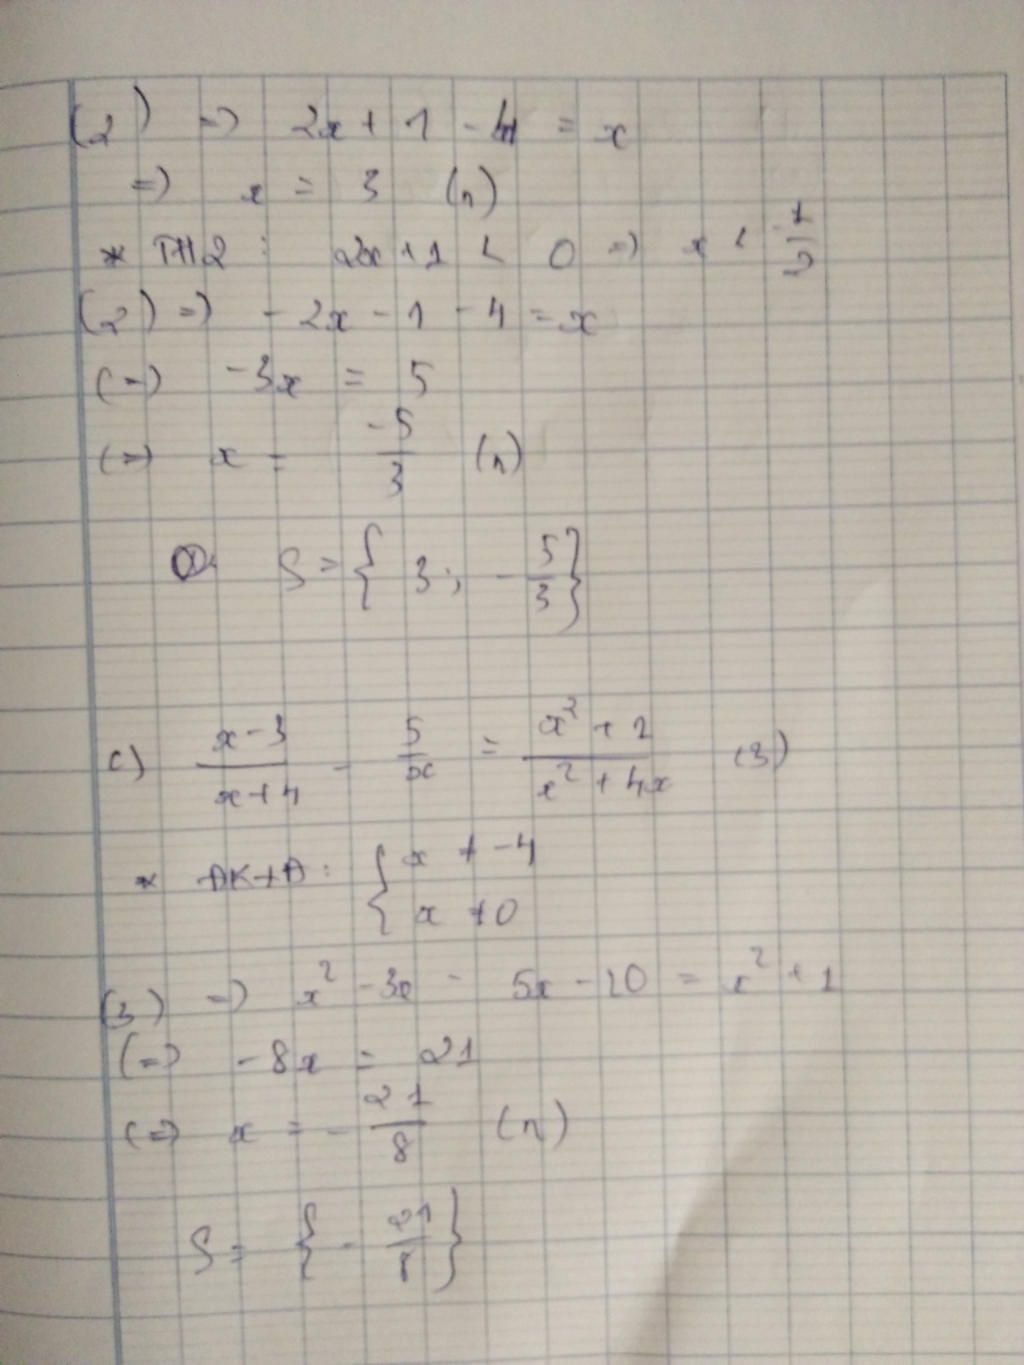 (2) => 2x + 1 - 4 = x
=> x = 3 (n)
* TH2 : 2x + 1 < 0 => x < -1/2
(2) => -2x - 1 - 4 = x
(=) -3x = 5
(=> x = -5/3 (n)
S = { 3 ; -5/3 }
c) (x-3)/(x+4) - 5/x = (x² + 1)/(x² + 4x) (3)
* ĐKXĐ : { x ≠ -4
x ≠ 0
(3) => x² - 3x - 5x - 20 = x² + 1
(=> -8x = 21
(=> x = -21/8 (n)
S = { -21/8 }